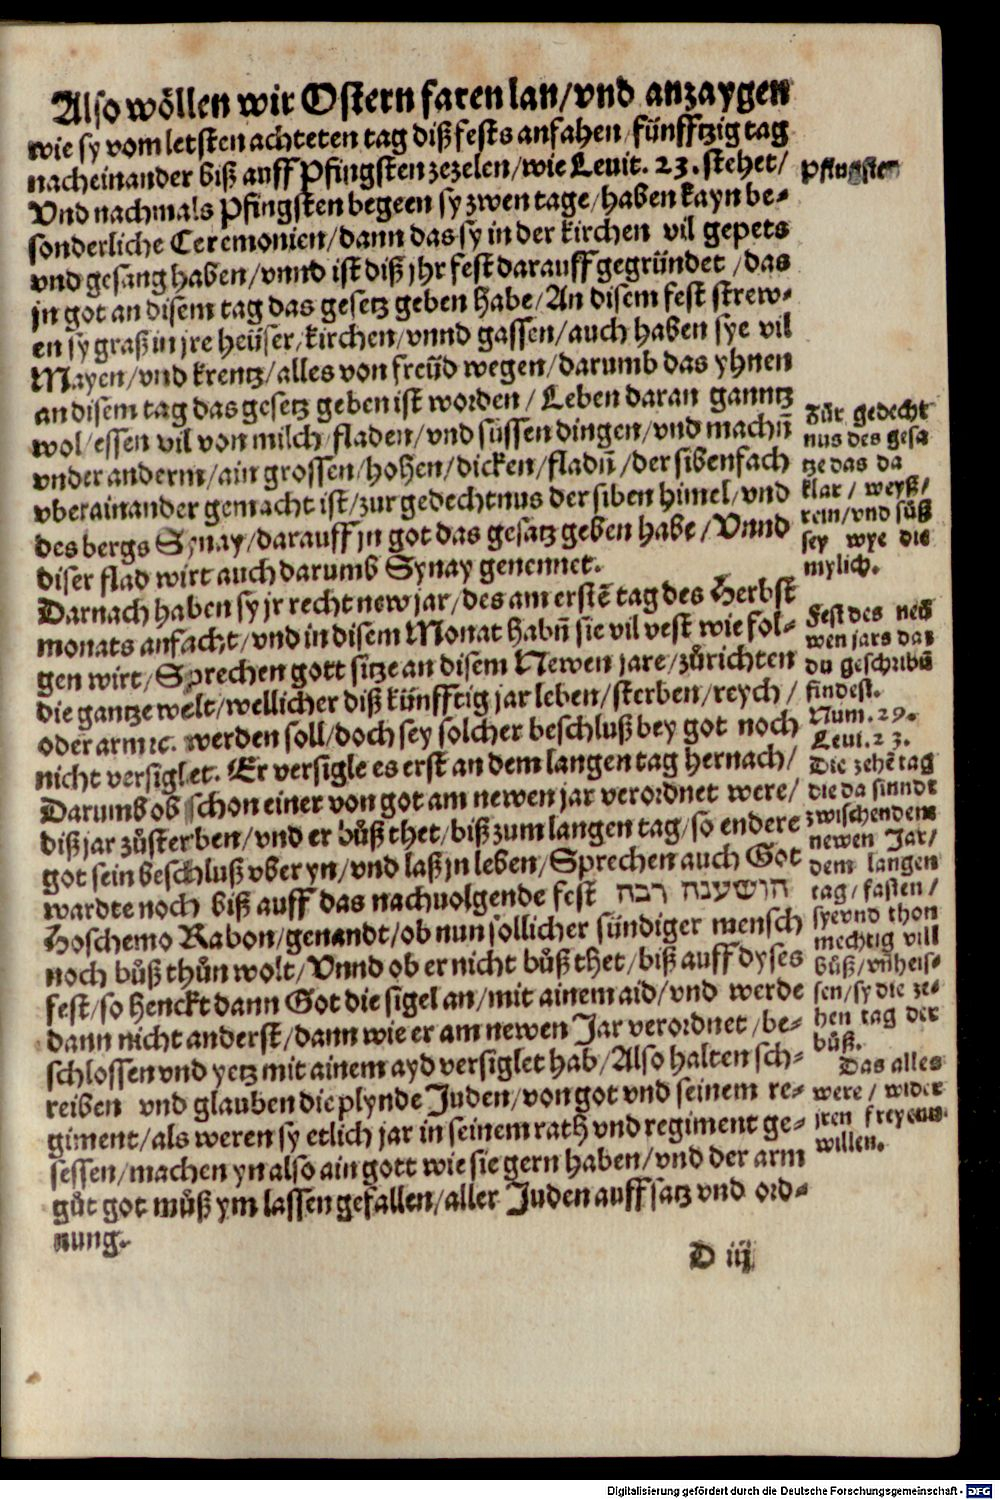 Also wöllen wir Ostern faren lan/vnd anzaygen
wie sy vom letsten achteten tag diß fests anfahen/fünfftzig tag
nacheinander biß auff Pfingsten zezelen/wie Leuit. 23. stehet/
Vnd nachmals Pfingsten begeen sy zwen tage/haben kayn be-
sonderliche Ceremonien/dann das sy in der kirchen vil gepets
vnd gesang haben/vnnd ist diß jhr fest darauff gegründet/das
jn got an disem tag das gesetz geben habe/An disem fest strew-
en sy graß in jre heüser/kirchen/vnnd gassen/auch haben sye vil
Mayen/vnd krentz/alles von freüd wegen/darumb das yhnen
an disem tag das gesetz geben ist worden/Leben daran ganntz
wol/essen vil von milch fladen/vnd süssen dingen/vnd machñ
vnder anderm/ain grossen/hohen/dicken/fladñ/der sibenfach
vberainander gemacht ist/zur gedechtnus der siben himel/vnd
des bergs Synay/darauff jn got das gesatz geben habe/Vnnd
diser flad wirt auch darumb Synay genennet.
Darnach haben sy jr recht new jar/des am erstẽ tag des Herbst
monats anfacht/vnd in disem Monat habñ sie vil vest wie fol-
gen wirt/Sprechen gott sitze an disem Newen jare/zůrichten
die gantze welt/wellicher diß künfftig jar leben/sterben/reych/
oder arm ꝛc. werden soll/doch sey solcher beschluß bey got noch
nicht versiglet. Er versigle es erst an dem langen tag hernach/
Darumb ob schon einer von got am newen jar verordnet were/
diß jar zůsterben/vnd er bůß thet/biß zum langen tag/so endere
got sein beschluß vber yn/vnd laß jn leben/Sprechen auch Got
wardte noch biß auff das nachuolgende fest הושענה רבה
Hoschemo Rabon/genandt/ob nun sollicher sündiger mensch
noch bůß thůn wolt/Vnnd ob er nicht bůß thet/biß auff dyses
fest/so henckt dann Got die sigel an/mit ainem aid/vnd werde
dann nicht anderst/dann wie er am newen Jar verordnet/be-
schlossen vnd yetz mit ainem ayd versiglet hab/Also halten sch-
reiben vnd glauben die plynde Juden/von got vnd seinem re-
giment/als weren sy etlich jar in seinem rath vnd regiment ge-
sessen/machen yn also ain gott wie sie gern haben/vnd der arm
gůt got můß ym lassen gefallen/aller Juden auffsatz vnd ord-
nung.
D iij
Pfingsten
Zůr gedecht
nus des gesa
tze das da
klar/weyß/
rein/vnd süß
sey wye die
mylich.
Fest des neü
wen jars das
du geschribñ
findest.
Num. 29.
Leui. 23.
Die zehẽ tag
die da sinndt
zwischen dem
newen Jar/
dem langen
tag/fasten/
sye vnd thon
mechtig vill
bůß/vñ heis-
sen/sy die ze-
hen tag der
bůß.
Das alles
were/wider
jren freyenn
willen.
Digitalisierung gefördert durch die Deutsche Forschungsgemeinschaft - DFG